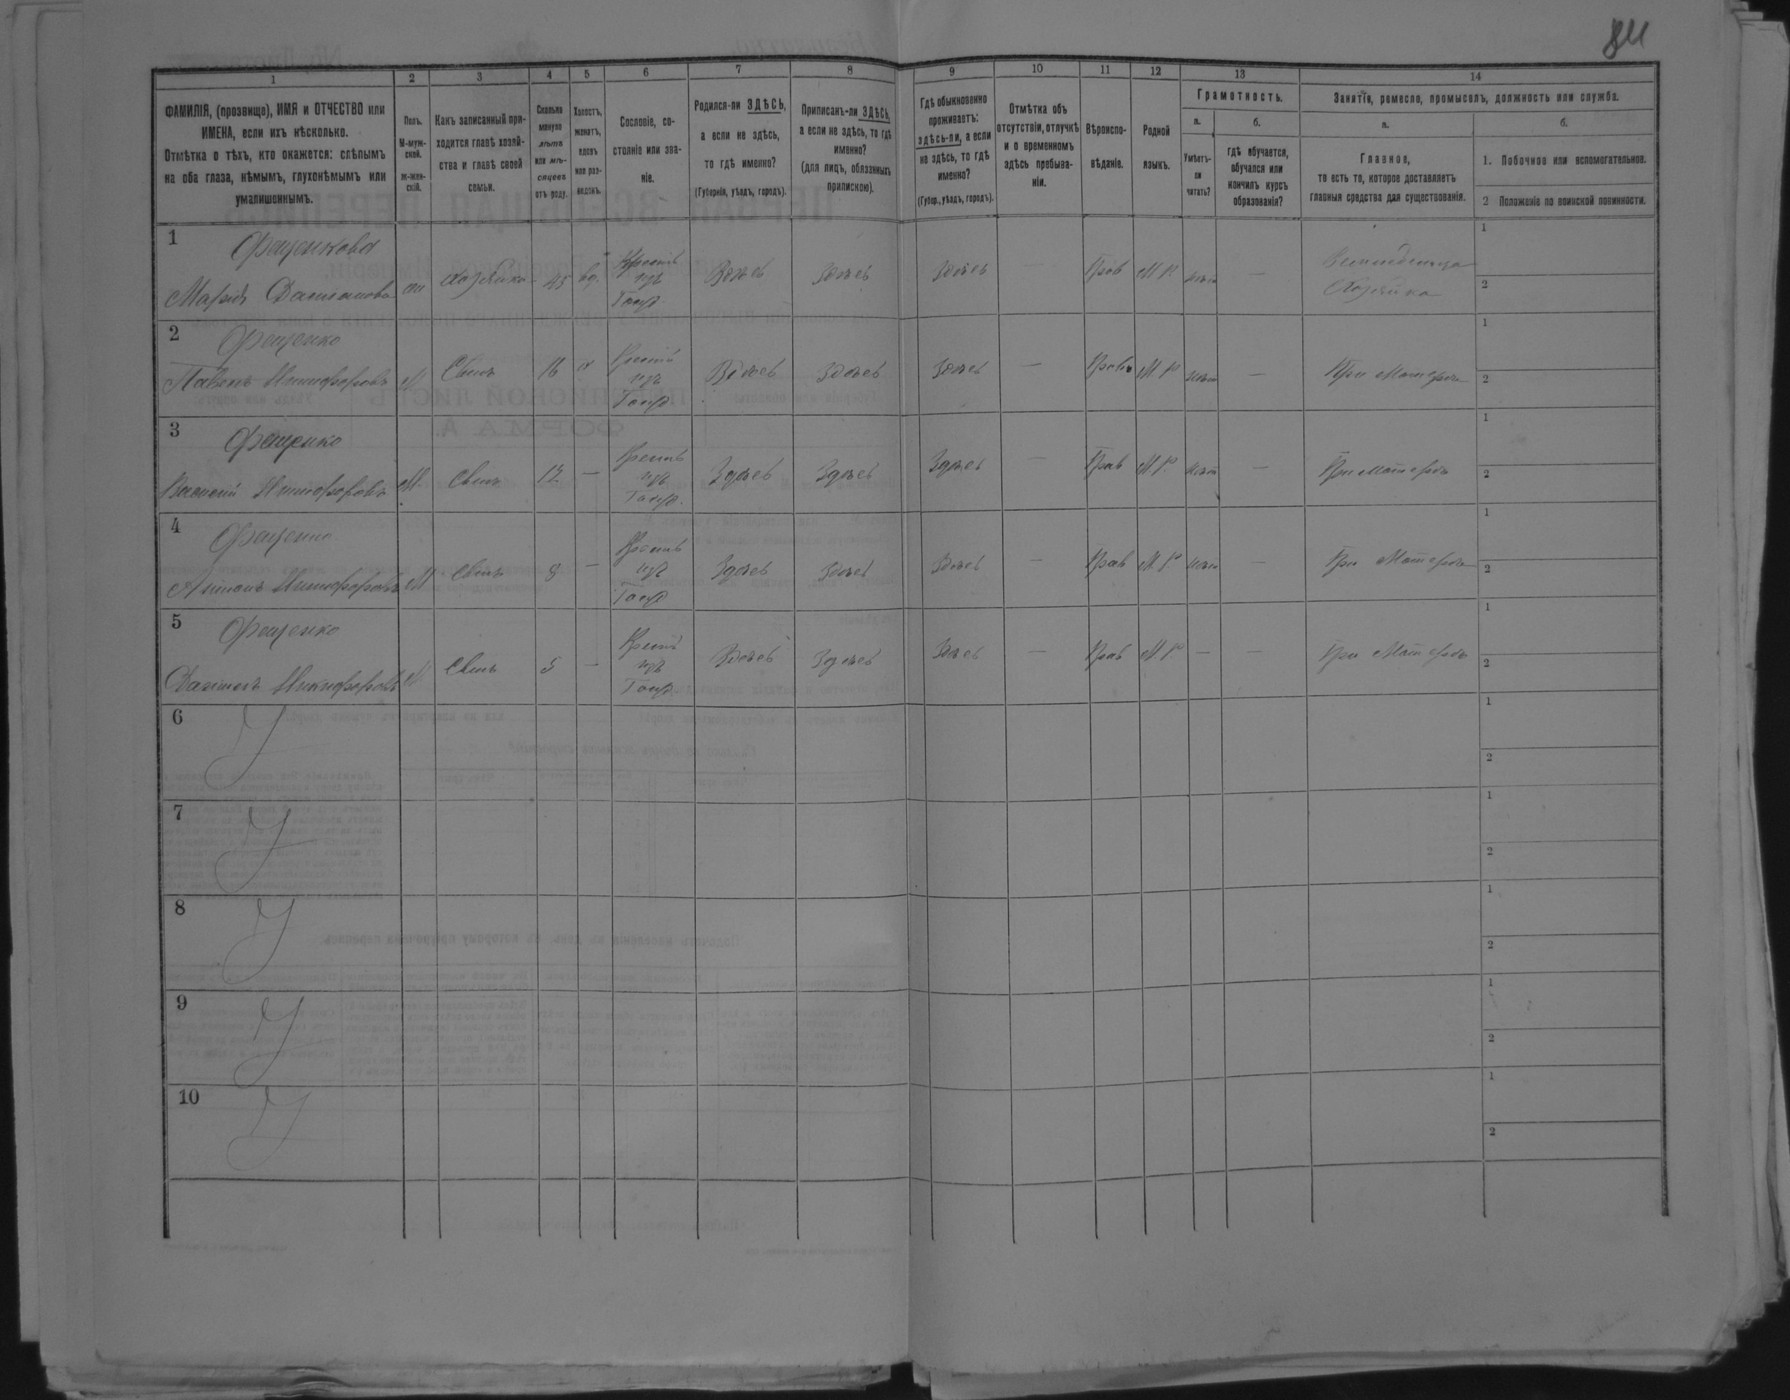 84
1 2 3 4 5 6 7 8 9 10 11 12 13 14
ФАМИЛІЯ, (прозвище), ИМЯ и ОТЧЕСТВО или ИМЕНА, если ихъ нѣсколько.
Отмѣтка о тѣхъ, кто окажется: слѣпымъ на оба глаза, нѣмымъ, глухонѣмымъ или умалишеннымъ.
Полъ.
М-муж-
ской.
ж-жен-
скій.
Какъ записанный при-
ходится главѣ хозяй-
ства и главѣ своей
семьи.
Сколько
минуло
лѣтъ
или мѣ-
сяцевъ
отъ роду.
Холостъ,
женатъ,
вдовъ
или раз-
веденъ.
Сословіе, со-
стояніе или зва-
ніе.
Родился-ли ЗДѢСЬ,
а если не здѣсь,
то гдѣ именно?
(Губернія, уѣздъ, городъ).
Приписанъ-ли ЗДѢСЬ,
а если не здѣсь, то гдѣ
именно?
(для лицъ, обязанныхъ
припискою).
Гдѣ обыкновенно
проживаетъ:
здѣсь-ли, а если
не здѣсь, то гдѣ
именно?
(Губер., уѣздъ, городъ).
Отмѣтка объ
отсутствіи, отлучкѣ
и о временномъ
здѣсь пребыва-
ніи.
Вѣроиспо-
вѣданіе.
Родной
языкъ.
Грамотность.
а.
Умѣетъ-
ли
читать?
б.
Гдѣ обучается,
обучался или
кончилъ курсъ
образованія?
Занятіе, ремесло, промыселъ, должность или служба.
а.
Главное,
то есть то, которое доставляетъ
главныя средства для существованія.
б.
1. Побочное или вспомогательное.
2 Положеніе по воинской повинности.
1
Фещенкова
Марія хозяйка 45 вд. Здѣсь Здѣсь Здѣсь Прав М.Р. нѣтъ —
Хозяйка
1
2
2
Фещенко
Павелъ Никифоровъ М Сынъ 16 х Здѣсь Здѣсь Здѣсь — Прав М.Р. нѣтъ — При Матери
1
2
3
Фещенко
Василій Никифоровъ М. Сынъ 12 — Здѣсь Здѣсь Здѣсь — Прав М.Р. нѣтъ — При Матери
1
2
4
Фещенко
Антонъ Никифоровъ М Сынъ 8 — Здѣсь Здѣсь Здѣсь — Прав М.Р. нѣтъ — При Матери
1
2
5
Фещенко
Никифоровъ М Сынъ 5 — Здѣсь Здѣсь Здѣсь — Прав М.Р. — — При Матери
1
2
6
1
2
7
1
2
8
1
2
9
1
2
10
1
2